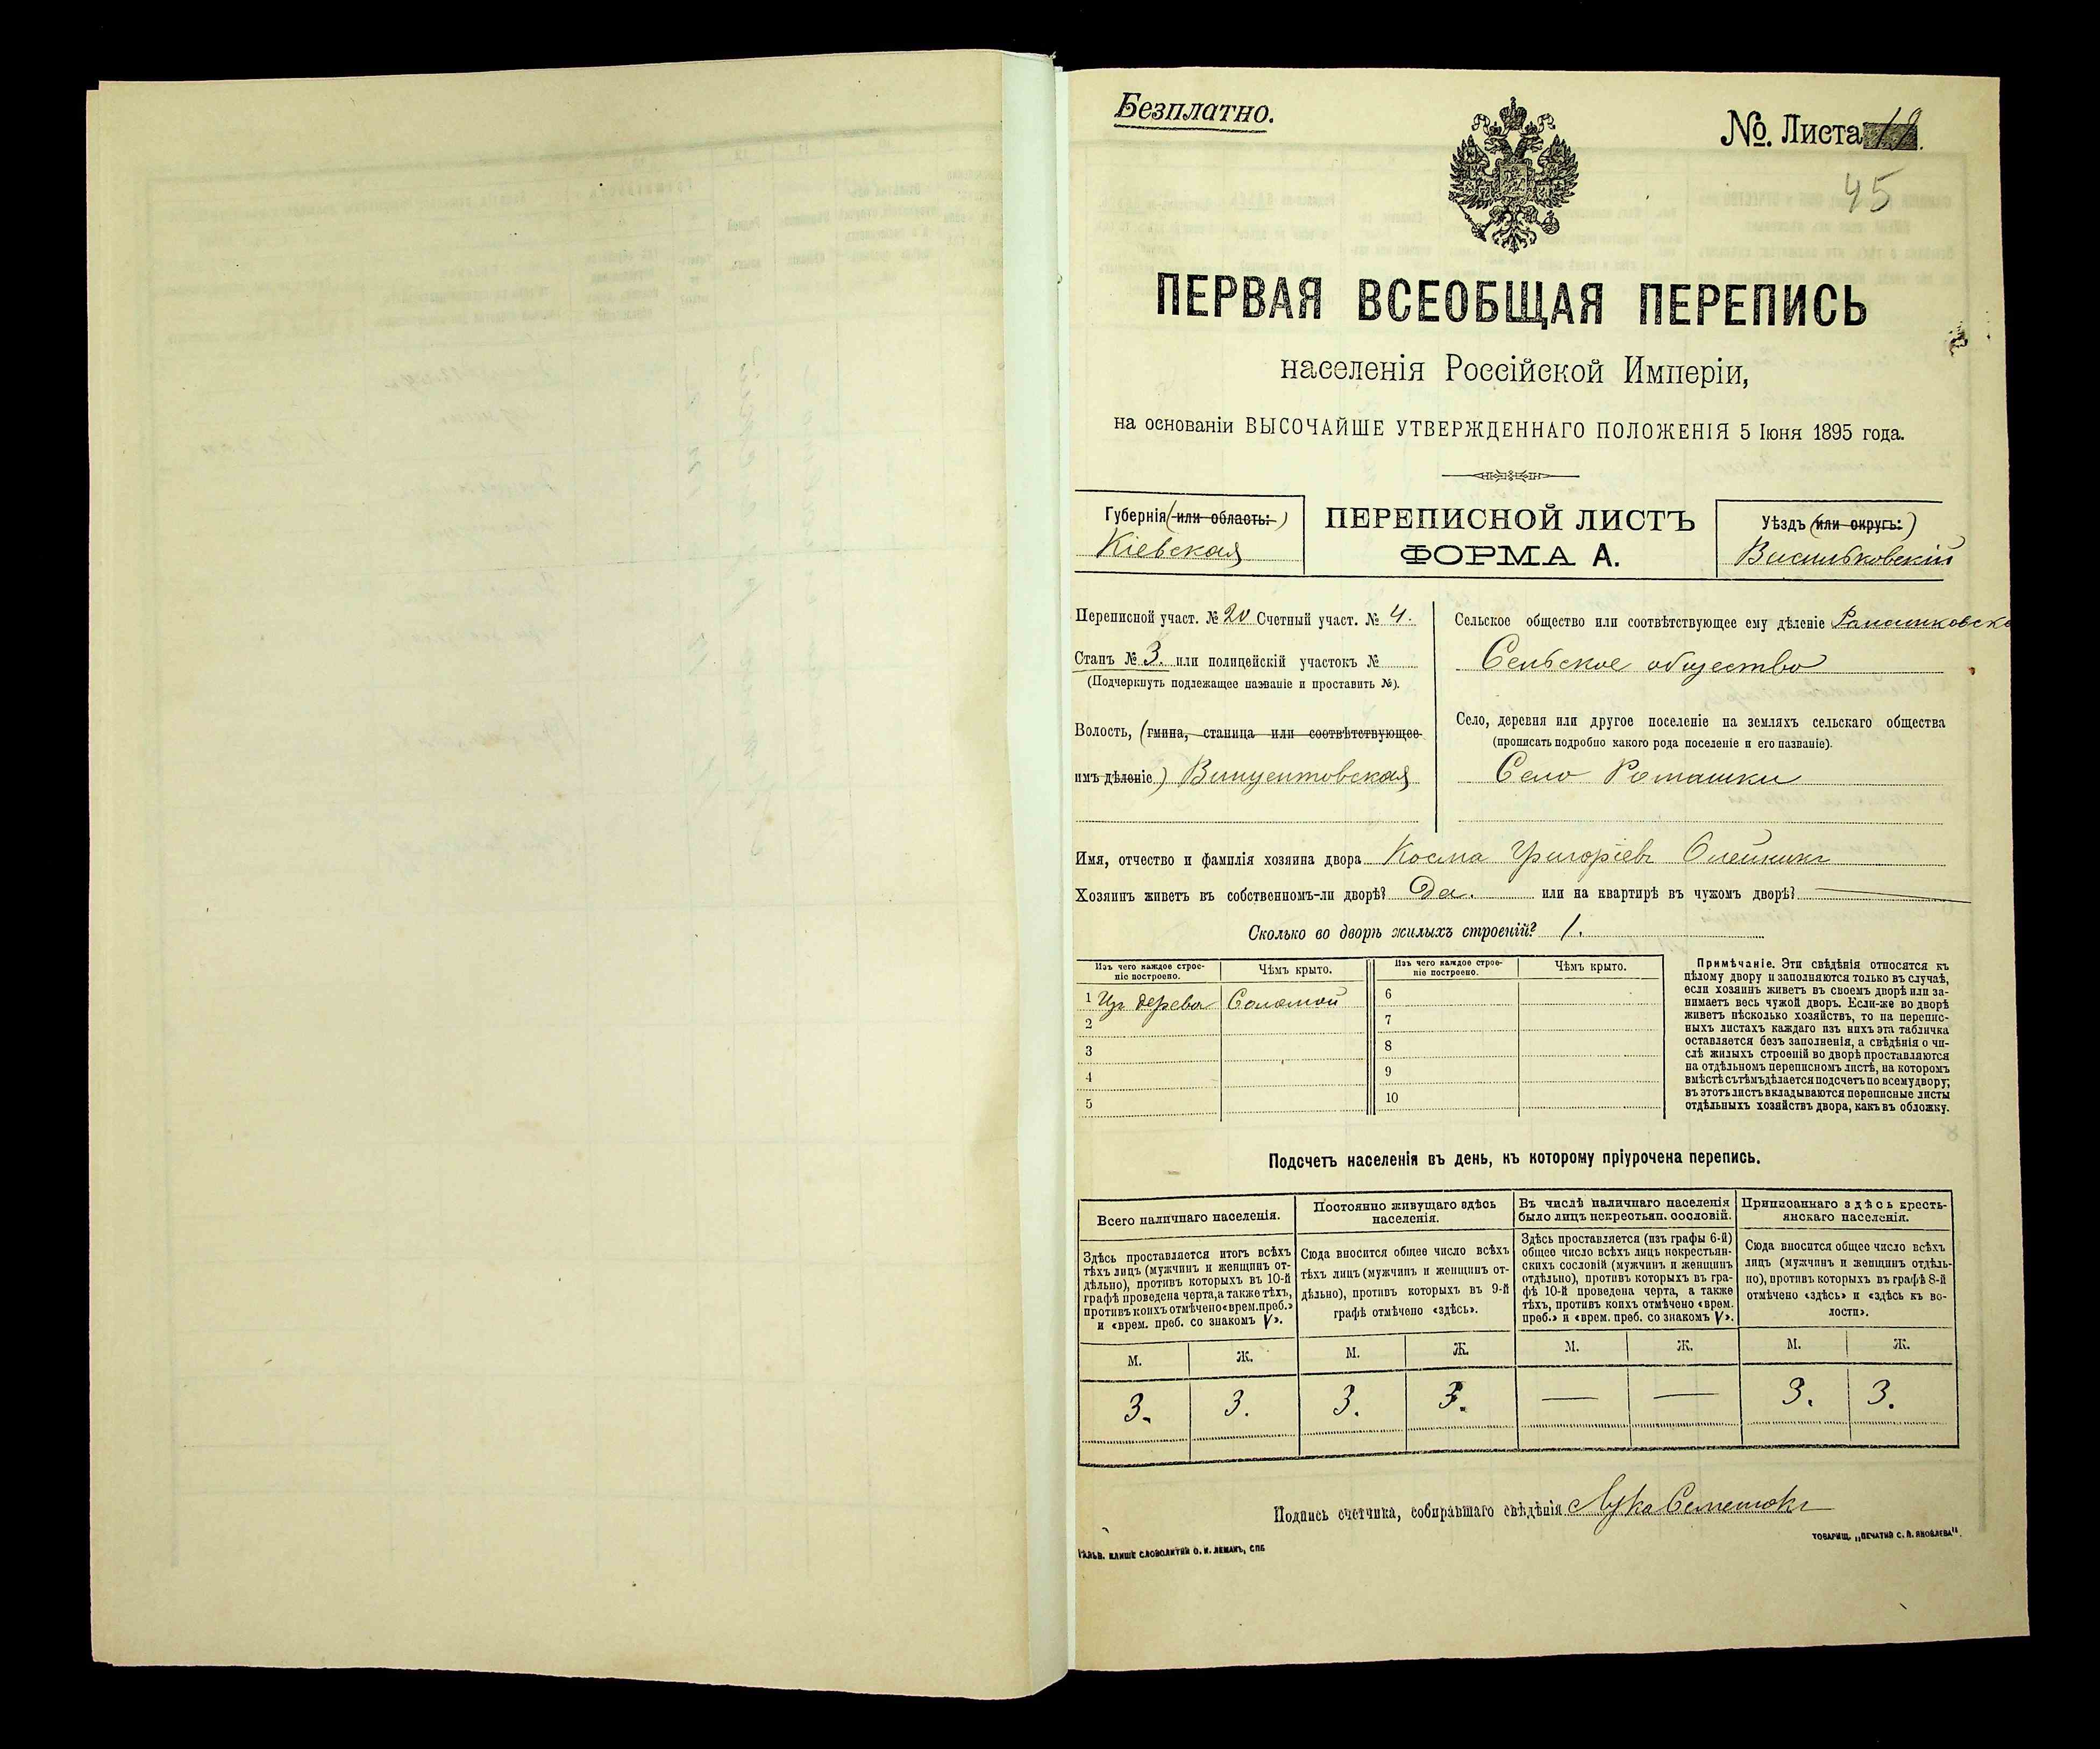 Безплатно.
№. Листа 19.
45
ПЕРВАЯ ВСЕОБЩАЯ ПЕРЕПИСЬ
населенія Россійской Имперіи,
на основаніи ВЫСОЧАЙШЕ УТВЕРЖДЕННАГО ПОЛОЖЕНІЯ 5 Іюня 1895 года.
Губернія (или область:)
Кіевская
ПЕРЕПИСНОЙ ЛИСТЪ
ФОРМА А.
Уѣздъ (или округъ:)
Васильковскій
Переписной участ. № 20 Счетный участ. № 4.
Станъ № 3. или полицейскій участокъ №
(Подчеркнуть подлежащее названіе и проставить №).
Волость, (гмина, станица или соотвѣтствующее
имъ дѣленіе) Винцентовская
Сельское общество или соотвѣтствующее ему дѣленіе
Сельское общество
Село, деревня или другое поселеніе на земляхъ сельскаго общества
(прописать подробно какого рода поселеніе и его названіе).
Село Ромашки
Имя, отчество и фамилія хозяина двора Косма Григоріевъ Олейникъ
Хозяинъ живетъ въ собственномъ-ли дворѣ? Да. или на квартирѣ въ чужомъ дворѣ?
Сколько во дворѣ жилыхъ строеній? 1.
Изъ чего каждое строе-
ніе построено.
Чѣмъ крыто.
Изъ чего каждое строе-
ніе построено.
Чѣмъ крыто.
1 Изъ дерева Соломой 6
2 7
3 8
4 9
5 10
Примѣчаніе. Эти свѣдѣнія относятся къ
цѣлому двору и заполняются только въ случаѣ,
если хозяинъ живетъ въ своемъ дворѣ или за-
нимаетъ весь чужой дворъ. Если-же во дворѣ
живетъ нѣсколько хозяйствъ, то на перепис-
ныхъ листахъ каждаго изъ нихъ эта табличка
оставляется безъ заполненія, а свѣдѣнія о чи-
слѣ жилыхъ строеній во дворѣ проставляются
на отдѣльномъ переписномъ листѣ, на которомъ
вмѣстѣ съ тѣмъ дѣлается подсчетъ по всему двору;
въ этотъ листъ вкладываются переписные листы
отдѣльныхъ хозяйствъ двора, какъ въ обложку.
Подсчетъ населенія въ день, къ которому пріурочена перепись.
Всего наличнаго населенія.
Постоянно живущаго здѣсь
населенія.
Въ числѣ наличнаго населенія
было лицъ некрестьян. сословій.
Приписаннаго здѣсь кресть-
янскаго населенія.
Здѣсь проставляется итогъ всѣхъ
тѣхъ лицъ (мужчинъ и женщинъ от-
дѣльно), противъ которыхъ въ 10-й
графѣ проведена черта, а также тѣхъ,
противъ коихъ отмѣчено «врем. преб.»
и «врем. преб. со знакомъ V».
Сюда вносится общее число всѣхъ
тѣхъ лицъ (мужчинъ и женщинъ от-
дѣльно), противъ которыхъ въ 9-й
графѣ отмѣчено «здѣсь».
Здѣсь проставляется (изъ графы 6-й)
общее число всѣхъ лицъ некрестьян-
скихъ сословій (мужчинъ и женщинъ
отдѣльно), противъ которыхъ въ гра-
фѣ 10-й проведена черта, а также
тѣхъ, противъ коихъ отмѣчено «врем.
преб.» и «врем. преб. со знакомъ V».
Сюда вносится общее число всѣхъ
лицъ (мужчинъ и женщинъ отдѣль-
но), противъ которыхъ въ графѣ 8-й
отмѣчено «здѣсь» и «здѣсь къ во-
лости».
М. Ж. М. Ж. М. Ж. М. Ж.
3. 3. 3. 3. — — 3. 3.
Подпись счетчика, собиравшаго свѣдѣнія Лука
ГАЛЬВ. КЛИШЕ СЛОВОЛИТНИ О. И. ЛЕМАНЪ, СПБ
ТОВАРИЩ. „ПЕЧАТНЯ С. П. ЯКОВЛЕВА".